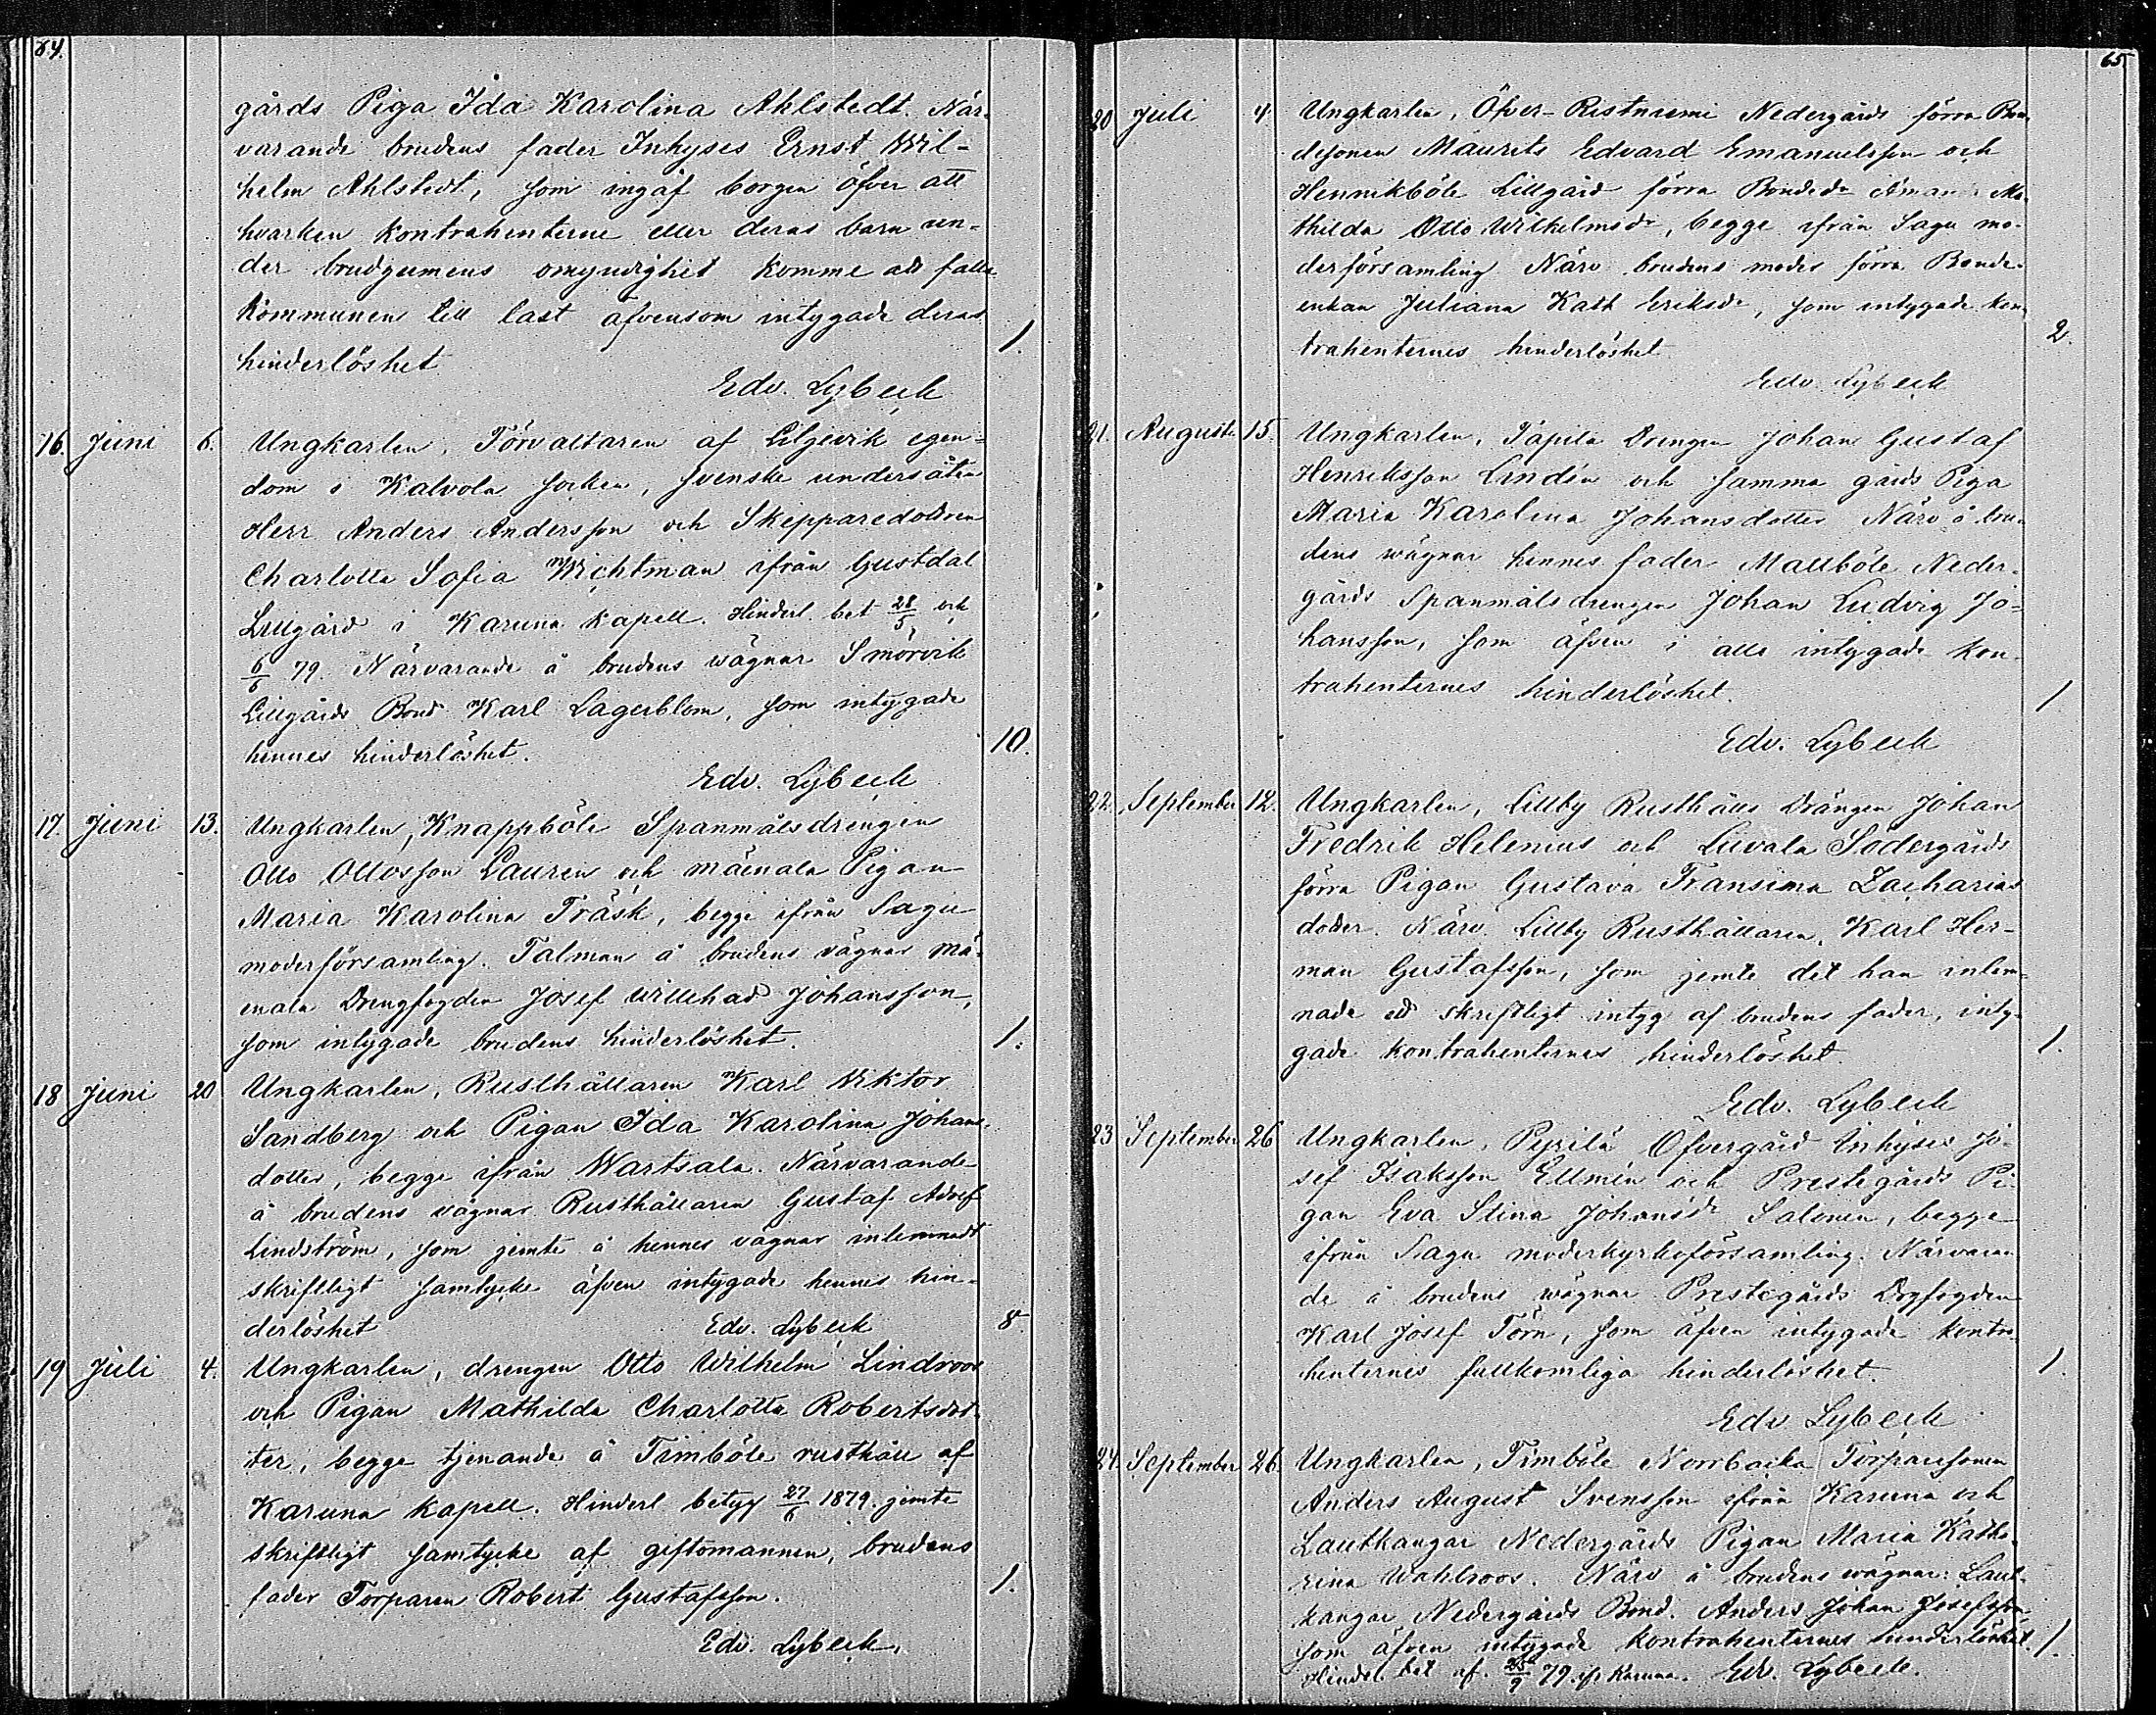 64.
gårds Piga Ida Karolina Ahlstedt. När-
varande brudens fader Inhyses Ernst Wil-
helm Ahlstedt, som ingaf borgen öfver att
hvarken kontrahenterne eller deras barn un-
der brudgumens omyndighet komme att falla
kommunen till last äfvensom intygade deras
hinderlöshet 1.
Edv. Lybeck
16. Juni 6. Ungkarlen, Förvaltaren af Liljevik egen-
dom i Kalvola socken, svenske undersåten
Herr Anders Andersson och Skepparedottren
Charlotta Sofia Wichtman ifrån Gustdal
Lillgård i Karuna kapell. Hinderl. bet 28/5 och
6/6 79. Närvarande å brudens wägnar Smörvik
Lillgårds Bond Karl Lagerblom, som intygade
hennes hinderlöshet. 10.
Edv. Lybeck
17. Juni 13. Ungkarlen, Knappböle Spanmålsdrengen
Otto Ottosson Lauren och mäenala Pigan
Maria Karolina Träsk, begge ifrån Sagu
moderförsamling. Talman å brudens vägnar mä-
enala Drengfogden Josef Willehad Johansson,
som intygade brudens hinderlöshet. 1.
18 Juni 20 Ungkarlen, Rusthållaren Karl Viktor
Sandberg och Pigan Ida Karolina Johans-
dotter, begge ifrån Wartsala. Närvarande
å brudens vägnar Rusthållaren Gustaf Adolf
Lindström, som jemte å hennes vägnar inlemnadt
skriftligt samtycke äfven intygade hennes hin-
derlöshet Edv. Lybeck 8.
19 Juli 4. Ungkarlen, drengen Otto Wilhelm Lindroos
och Pigan Mathilda Charlotta Robertsdot-
ter, begge tjenande å Timböle rusthåll af
Karuna kapell. Hinderl betyg 27/6 1879. jemte
skriftligt samtycke af giftomannen, brudens
fader Torparen Robert Gustafsson. 1.
Edv. Lybeck.
65
20 Juli 4 Ungkarlen, Öfver-Ristniemi Nedergårds förra Bon-
desonen Maurits Edvard Emanuelsson och
Henrikböle Lillgård förra Bondedr Amanda Ma-
thilda Otto Wilhelmsdr, begge ifrån Sagu mo-
derförsamling Närv. brudens moder förra Bonde-
enkan Juliana Kath Eriksdr, som intygade kon-
trahenternes hinderlöshet 2.
Edv. Lybeck
21. Augusti 15. Ungkarlen, Papila Drengen Johan Gustaf
Henriksson Lindén och samma gårds Piga
Maria Karolina Johansdotter Närv å bru-
dens wägnar hennes fader Mattböle Neder-
gårds Spanmålsdrengen Johan Ludvig Jo-
hansson, som äfven i allo intygade kon-
trahenternes hinderlöshet. 1
Edv. Lybeck
22. September 12. Ungkarlen, Lillby Rusthålls Drängen Johan
Fredrik Helenius och Liuvala Södergårds
förra Pigan Gustava Fransina Zacharias
dotter. Närv. Lillby Rusthållaren, Karl Her-
man Gustafsson, som jemte det han inlem-
nade ett skriftligt intyg af brudens fader, inty-
gade kontrahenternes hinderlöshet. 1.
Edv. Lybeck
23 September 26 Ungkarlen, Pyrilä Öfvergård Inhyses Jo-
sef Isaksson Ellmén och Prestegårds Pi-
gan Eva Stina Johansdr Salonen, begge
ifrån Sagu moderkyrkoförsamling. Närvaran
de å brudens wägnar Prestegårds Drgfogden
Karl Josef Törn, som äfven intygade kontra-
henternes fullkomliga hinderlöshet. 1.
Edv Lybeck
24. September 26. Ungkarlen, Timböle Norrbacka Torparesonen
Anders August Svensson ifrån Karuna och
Lautkangar Nedergårds Pigan Maria Katha-
rina Wahlroos. Närv å brudens wägnar: Laut-
kangar Nedergårds Bond. Anders Johan Josefsson,
som äfven intygade kontrahenternes hinderlöshet. 1.
Hinderl. bet af. 25/9 79. fr Karuna. Edv. Lybeck.